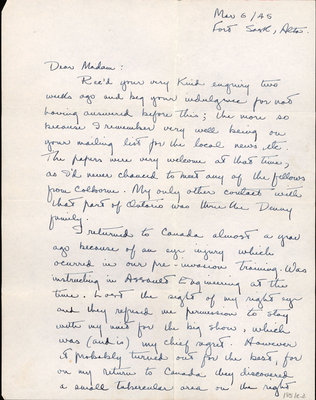 Mar 6/45
Fort Sask, Alta.
Dear Madam:
Rec'd your very kind enquiry two
weeks ago and beg your indulgence for not
having answered before this; the more so
because I remember very well being on
your mailing list for the local news, etc.
The papers were very welcome at that time,
as I'd never chanced to meet any of the fellows
from Colborne. My only other contact with
that part of Ontario was thru the Denny
family.
I returned to Canada almost a year
ago because of an eye injury which
ocurred in our pre-invasion training. Was
instructing in Assault Engineering at the
time. Lost the sight of my right eye
and they refused me permission to stay
with my unit for the big show, which
was (and is) my chief regret. However
it probably turned out for the best, for
on my return to Canada, they discovered
a small tubercular area on the right